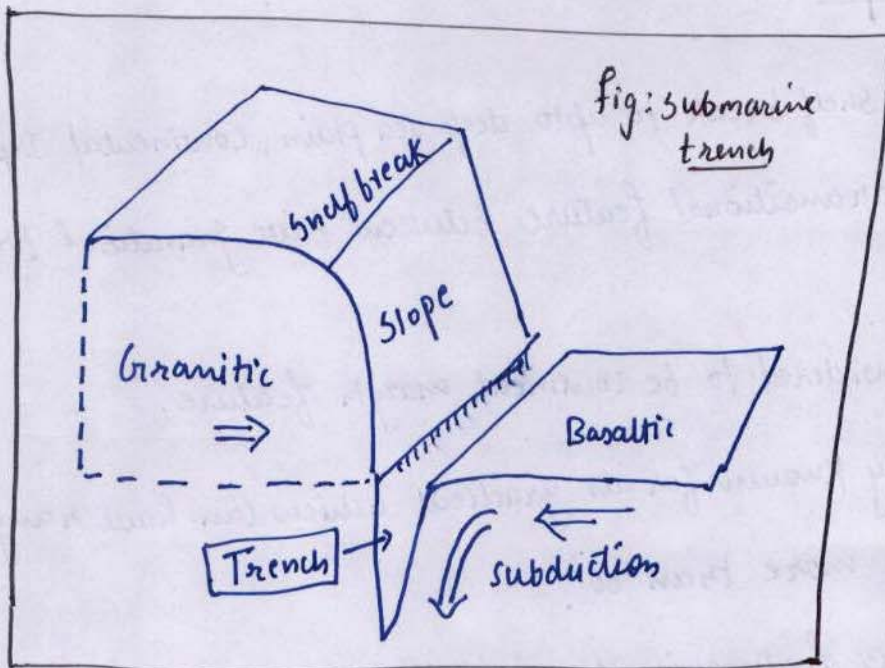 fig: submarine
trench
shelf break
Slope
Granitic
Basaltic
Trench
subduction